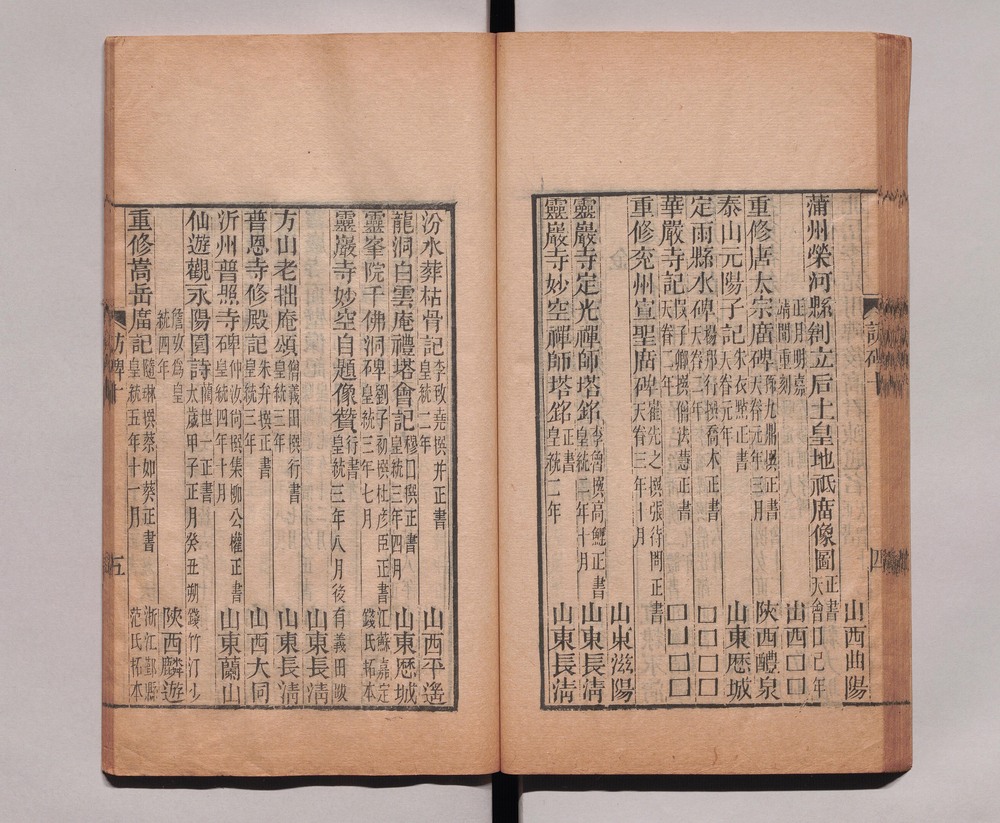 山西曲陽
蒲州榮河縣剏立后土皇地祇廟像圖 正書 天會口巳年
正月明嘉靖間重刻 山西□□
重修唐太宗廟碑 孫九鼎撰正書 天眷元年三月 陝西醴泉
泰山元陽子記 朱衣㸃正書 天眷元年 山東歷城
定雨縣水碑 楊舉行撰喬木正書 天眷二年 □□□□
華嚴寺記 段子卿撰僧法慧正書 天眷二年 □□□□
重修兖州宣聖廟碑 崔先之撰張待問正書 天眷三年十月 山東滋陽
靈巖寺定光禪師塔銘 李魯撰高鯉正書 皇統二年十月 山東長淸
靈巖寺妙空禪師塔銘 正書 皇統二年 山東長淸
訪碑十 四
汾水葬枯骨記 李致堯撰并正書 皇統二年 山西平遙
龍洞白雲庵禮塔會記 穆口撰正書 皇統三年四月 山東歷城
靈峯院千佛洞碑 劉子初撰杜彥臣正書 皇統三年七月 江蘇嘉定錢氏拓本
靈巖寺妙空自題像贊 行書 皇統三年八月後有義田跋
山東長淸
方山老拙庵頌 釋義田撰行書 皇統三年 山東長淸
普恩寺修殿記 朱弁撰正書 皇統三年 山西大同
沂州普照寺碑 仲汝尚撰集柳公權正書 皇統四年十月 山東蘭山
仙遊觀永陽園詩 蘭世一正書 太歲甲子正月癸丑朔 錢竹汀少
詹攷爲皇統四年 陝西麟遊
重修嵩岳廟記 隨琳撰蔡如葵正書 皇統五年十一月 浙江鄞縣范氏拓本
訪碑十 五